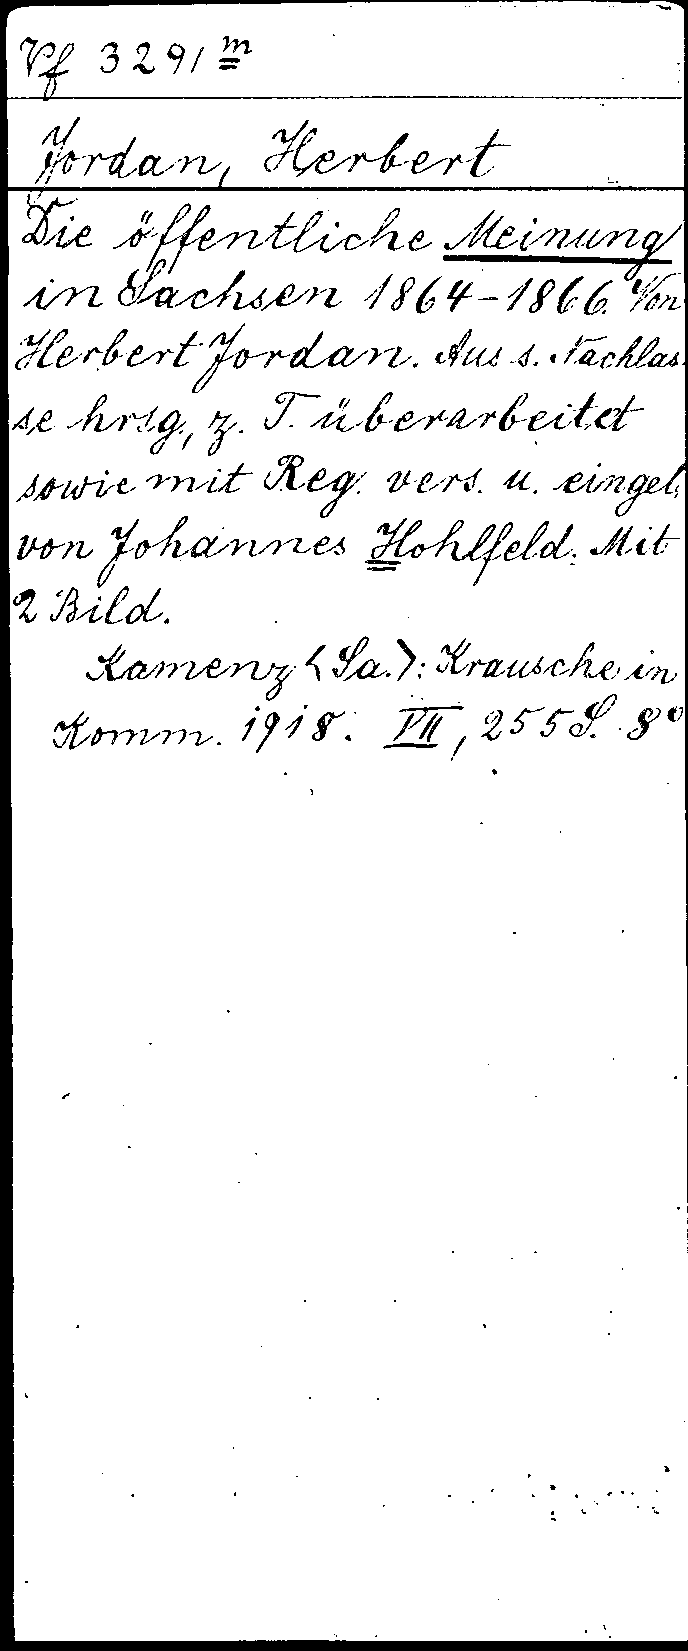 Vf 3291 m
Jordan, Herbert
Die öffentliche Meinung
in Sachsen 1864-1866. Von
Herbert Jordan. Aus s. Nachlas-
se hrsg., z. T. überarbeitet
sowie mit Reg. vers. u. eingel.
von Johannes Hohlfeld. Mit
2 Bild.
Kamenz <Sa.>: Krausche in
Komm. 1918. VII, 255 S. 8°